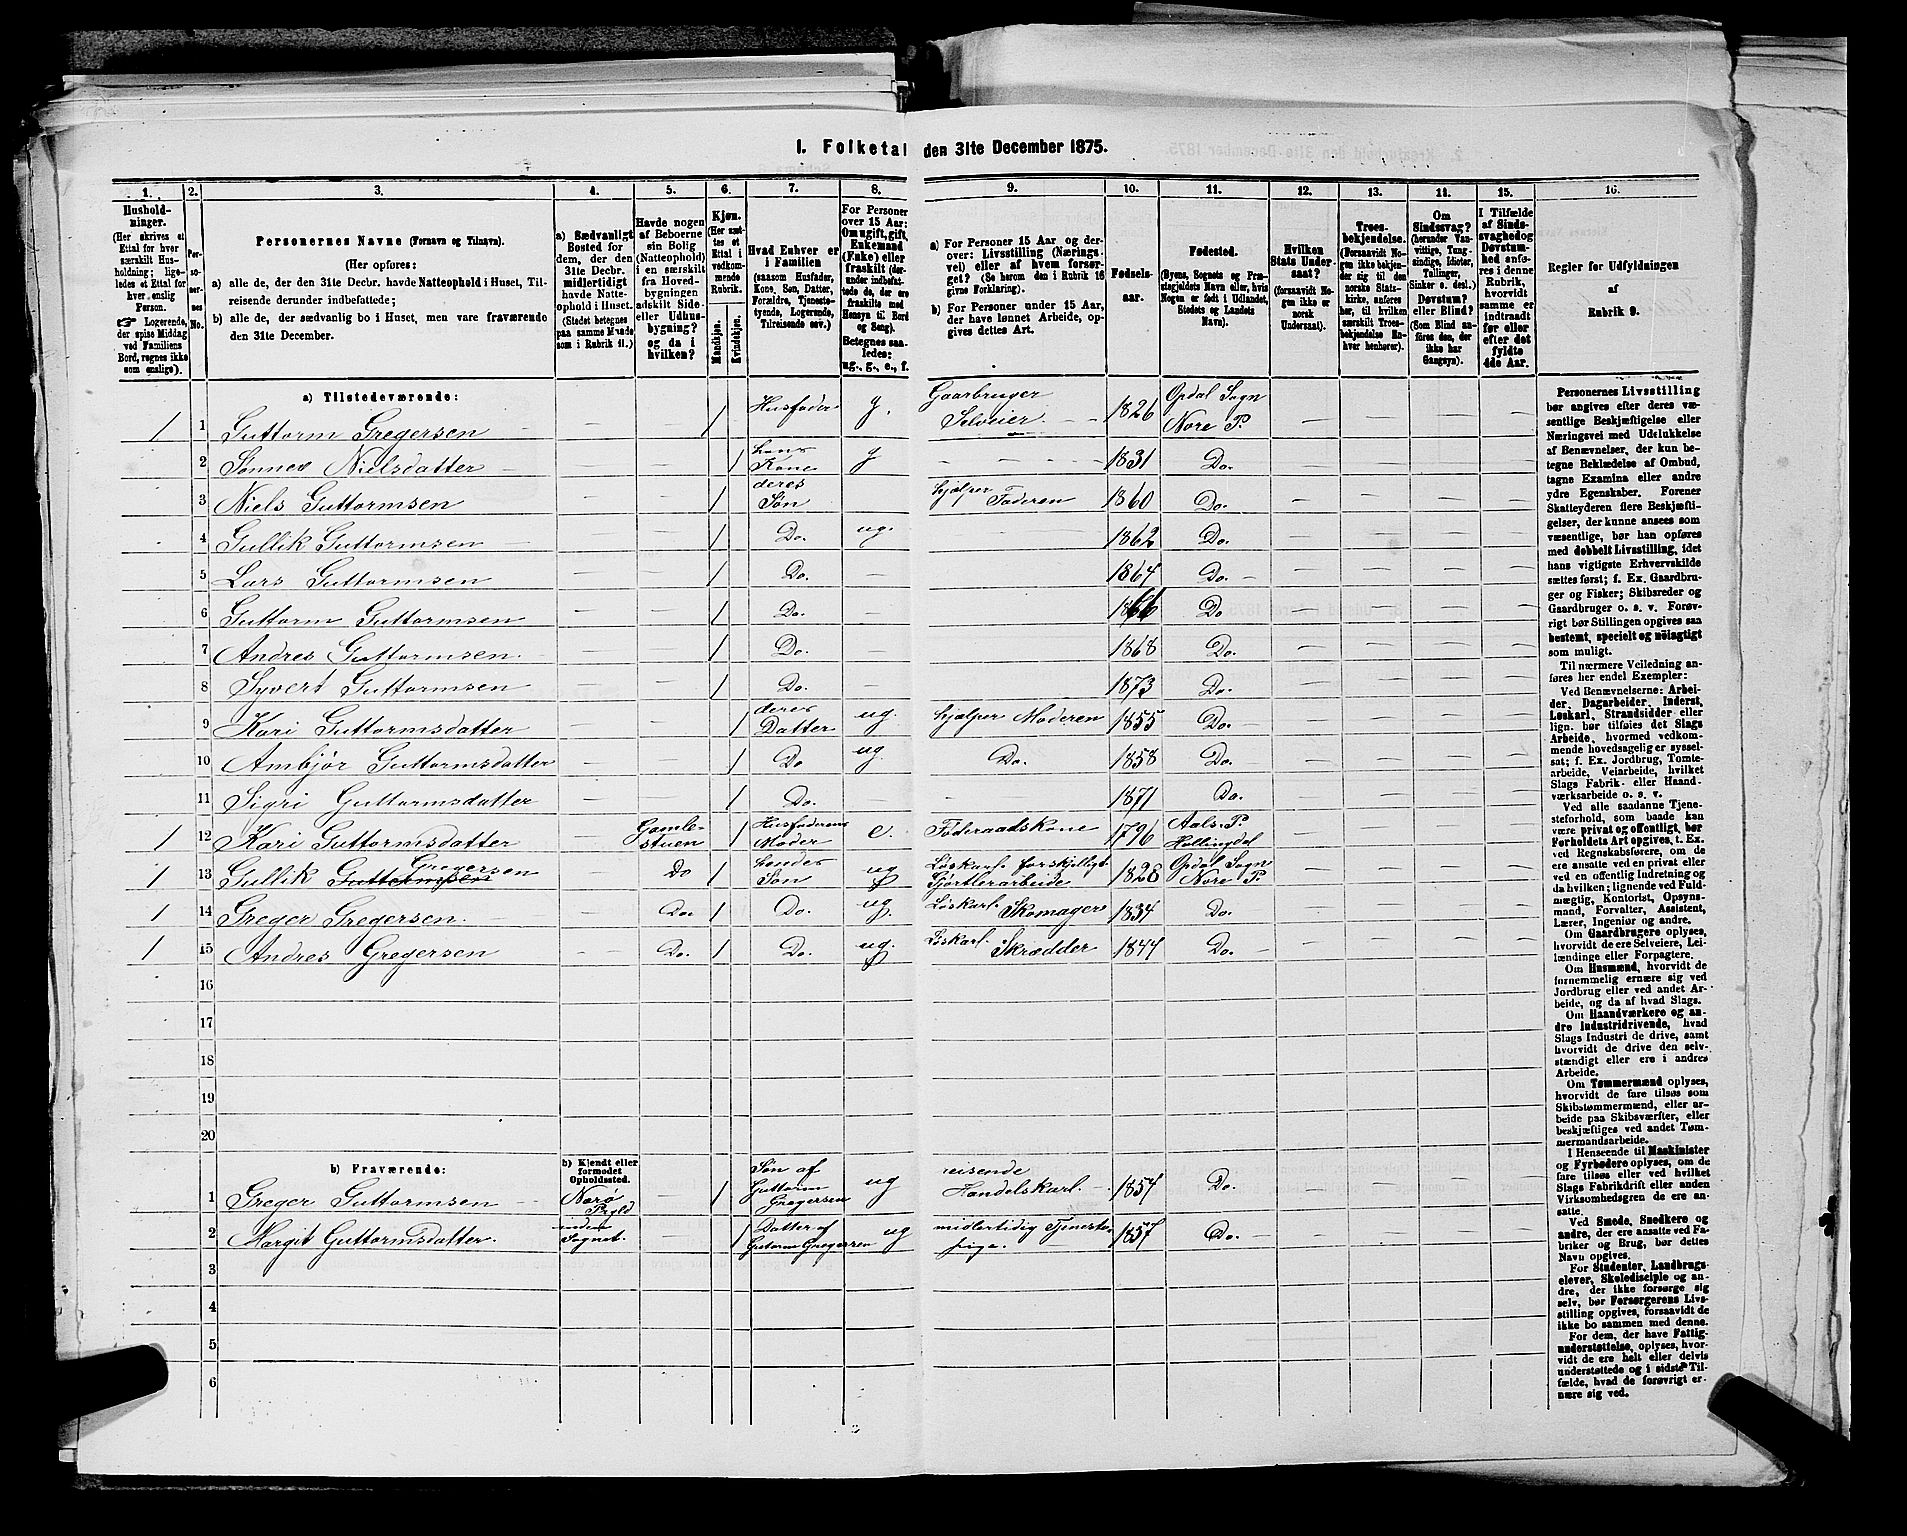 1. Folketal den 31te December 1875.
1. 2. 3. 4. 5. 6. 7. 8. 9. 10. 11. 12. 13. 14. 15. 16.
Husholdninger.
(Her skrives et
Ettal for hver
særskilt Husholdning;
ligeledes et Ettal for
hver enslig
Person.
Logerende,
der spise Middag
ved Familiens
Bord, regnes ikke
som enslige).
Personernes No.
Personernes Navne (Fornavn og Tilnavn).
(Her opføres:
a) alle de, der den 31te Decbr. havde Natteophold i Huset, Tilreisende derunder indbefattede;
b) alle de, der sædvanlig bo i Huset, men vare fraværende
den 31te December.
a) Sædvanligt
Bosted for
dem, der den
31te Decbr.
midlertidigt
havde Natteophold i Huset.
(Stedet betegnes
paa samme Maade
som i Rubrik 11.)
Havde nogen
af Beboerne
sin Bolig
(Natteophold)
i en særskilt
fra Hovedbygningen
adskilt Side-
eller Udhusbygning?
og da i
hvilken?
Kjøn.
(Her sættes et
Ettal i
vedkommende
Rubrik.
Mandkjøn.
Kvindekjøn.
Hvad Enhver er
i Familien
(saasom Husfader,
Kone, Søn, Datter,
Forældre, Tjenestetyende, Logerende,
Tilreisende osv.)
For Personer
over 15 Aar:
Om ugift, gift,
Enkemand
(Enke) eller
fraskilt (derunder indbefattede de, der ere
fraskilte med
Hensyn til Bord
og Seng).
Betegnes saaledes:
ug., g., e., f.
a) For Personer 15 Aar og derover: Livsstilling (Næringsvei) eller af hvem forsørget? (Se herom den i Rubrik 16
givne Forklaring).
b) For Personer under 15 Aar,
der have lønnet Arbeide, opgives dettes Art.
Fødselsaar.
Fødested.
(Byens, Sognets og Præstegjeldets Navn eller, hvis
Nogen er født i Udlandet,
Stedets og Landets
Navn).
Hvilken
Stats Undersaat?
(forsaavidt Nogen ikke er
norsk
Undersaat).
Troesbekjendelse.
(Forsaavidt Nogen ikke bekjender sig til den
norske Statskirke, anføres
her, til hvilken
særskilt Troesbekjendelse Enhver henhører).
Om
Sindssvag?
(herunder Vanvittige, Tungsindige, Idioter,
Tullinger,
Sinker o. desl.)
Døvstum?
eller Blind?
(Som Blind anføres den, der
ikke har
Gangsyn).
I Tilfælde
af Sindssvaghed og
Døvstumhed anføres i denne
Rubrik,
hvorvidt
samme er
indtraadt
før eller
efter det
fyldte
4de Aar.
Regler for Udfyldningen
af
Rubrik 9.
a) Tilstedeværende:
1 1 Guttorm Gregersen — — 1 Husfader g. Gaarbruger Selveier. 1826 Opdal Sogn Nore P. — — — —
2 Sønnev Nielsdatter — — 1 hans Kone g — 1831 Do. — — — —
3 Niels Guttormsen — — 1 deres Søn — hjælper Faderen 1860 Do. — — — —
4 Gullik Guttormsen — — 1 Do. ug. — 1862 Do. — — — —
5 Lars Guttormsen — — 1 Do. — 1864 Do. — — — —
6 Guttorm Guttormsen — — 1 Do. — 1866 Do — — — —
7 Andres Guttormsen. — — 1 Do. — 1868 Do. — — — —
8 Syvert Guttormsen — — 1 Do. — 1873 Do. — — — —
9 Kari Guttormsdatter — — 1 deres Datter ug. hjælper Moderen 1855 Do. — — — —
10 Ambjør Guttormsdatter — — 1 Do ug. Do. 1858 Do. — — — —
11 Sigri Guttormsdatter — — 1 Do. — — 1871 Do. — — — —
1 12 Kari Guttormsdatter — Gamlestuen 1 Husfaderens Moder e. Føderaadskone 1796 Aals P. Hallingdal — — — —
1 13 Gullik Guttormsen Gregersen Do 1 hendes Søn ug Løskarl. forskjelligt Gjørtlerarbeide 1828 Opdal Sogn Nore P. — — — —
1 14 Greger Gregersen. — Do. 1 Do. ug. Løskarl. Skomager 1834 Do. — — — —
1 15 Andres Gregersen — Do. 1 Do. ug. Løskarl. Skrædder 1844 Do. — — — —
16
17
18
19
20
b) Fraværende:
b) Kjendt eller
formodet
Opholdssted.
1 Greger Guttormsen — Nore Prgld — 1 Søn af Guttorm Gregersen ug reisende Handelskarl. 1854 Do. — — — —
2 Margit Guttormsdatter. inden Sognet. — 1 Datter af Guttorm Gregersen ug midlertidig Tjenestepige. 1857 Do. — — — —
3
4
5
6
Personernes Livsstilling
bør angives efter deres væsentlige Beskjæftigelse eller
Næringsvei med Udelukkelse
af Benævnelser, der kun betegne Beklædelse af Ombud,
tagne Examina eller andre
ydre Egenskaber. Forener
Skatteyderen flere Beskjæftigelser, der kunne ansees som
væsentlige, bør han opføres
med dobbelt Livsstilling, idet
hans vigtigste Erhvervskilde
sættes først; f. Ex. Gaardbruger og Fisker; Skibsreder og
Gaardbruger o. s. v. Forøvrigt bør Stillingen opgives saa
bestemt, specielt og nøiagtigt
som muligt.
Til nærmere Veiledning anføres her endel Exempler:
Ved Benævnelserne: Arbeider, Dagarbeider, Inderst,
Løskarl, Strandsidder eller
lign. bør tilføies det Slags
Arbeide, hvormed vedkommende hovedsagelig er sysselsat; f. Ex. Jordbrug, Tomtearbeide, Veiarbeide, hvilket
Slags Fabrik- eller Haandværksarbeide o. s. v.
Ved alle saadanne Tjenesteforhold, som baade kan
være privat og offentligt, bør
Forholdets Art opgives, t. Ex.
ved Regnskabsførere, om de
ere ansatte ved en privat eller
ved en offentlig Indretning og
da hvilken; lignende ved Fuldmægtig, Kontorist, Opsynsmand, Forvalter, Assistent,
Lærer, Ingeniør og andre.
Om Gaardbrugere oplyses,
hvorvidt de ere Selveiere, Leilændinge eller Forpagtere.
Om Husmænd, hvorvidt de
fornemmelig ernære sig ved
Jordbrug eller ved andet Arbeide, og da af hvad Slags.
Om Haandværkere og andre Industridrivende, hvad
Slags Industri de drive, samt
hvorvidt de drive den selvstændigt eller ere i andres
Arbeide.
Om Tømmermænd oplyses,
hvorvidt de fare tilsøs som
Skibstømmermænd, eller arbeide paa Skibsværfter, eller
beskjæftiges ved andet Tømmermandsarbeide.
I Henseende til Maskinister
og Fyrbødere oplyses, om de
fare tilsøs eller ved hvilket
Slags Fabrikdrift eller anden
Virksomhedsgren de ere ansatte.
Ved Smede, Snedkere og
andre, der ere ansatte ved Fabriker og Brug, bør dettes
Navn opgives.
For Studenter, Landbrugselever, Skoledisciple og andre, der ikke forsørge sig
selv, bør Forsørgerens Livsstilling opgives, forsaavidt de
ikke bo sammen med denne.
For dem, der have Fattigunderstøttelse, oplyses, hvorvidt de ere helt eller delvis
understøttede og i sidste Tilfælde, hvad de forøvrigt ernære sig ved.